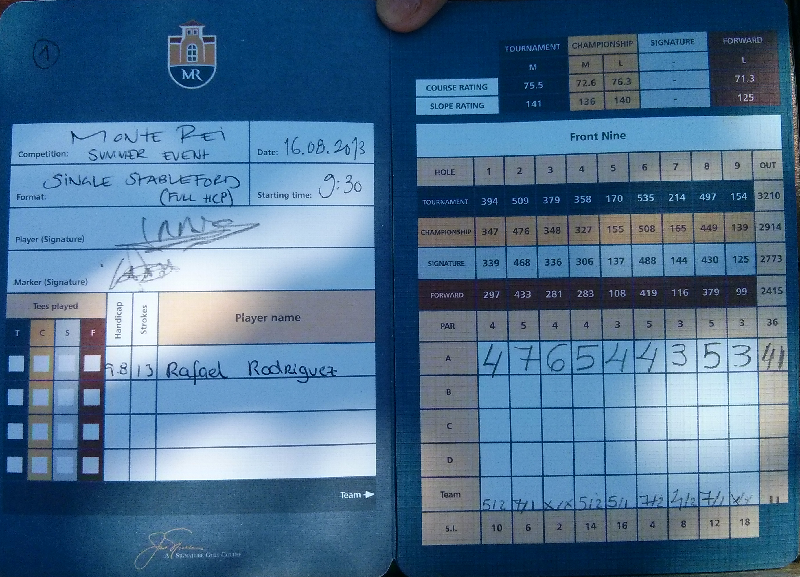 1
MR
Competition: MONTE REI SUMMER EVENT
Date: 16.08.2013
Format: SINGLE STABLEFORD (FULL HCP)
Starting time: 9:30
Player (Signature)
Marker (Signature)
Tees played Handicap Strokes Player name
T C S F
9.8 13 Rafael Rodriguez
Team
A SIGNATURE GOLF COURSE
TOURNAMENT CHAMPIONSHIP SIGNATURE FORWARD
M M L - L
COURSE RATING 75.5 72.6 76.3 - 71.3
SLOPE RATING 141 136 140 - 125
Front Nine
HOLE 1 2 3 4 5 6 7 8 9 OUT
TOURNAMENT 394 509 379 358 170 535 214 497 154 3210
CHAMPIONSHIP 347 476 348 327 155 508 165 449 139 2914
SIGNATURE 339 468 336 306 137 488 144 430 125 2773
FORWARD 297 433 281 283 108 419 116 379 99 2415
PAR 4 5 4 4 3 5 3 5 3 36
A 4 7 6 5 4 4 3 5 3 41
B
C
D
Team 5/2 7/1 x/x 5/2 5/1 7/2 7/1 x/x 11
S.I. 10 6 2 14 16 4 8 12 18